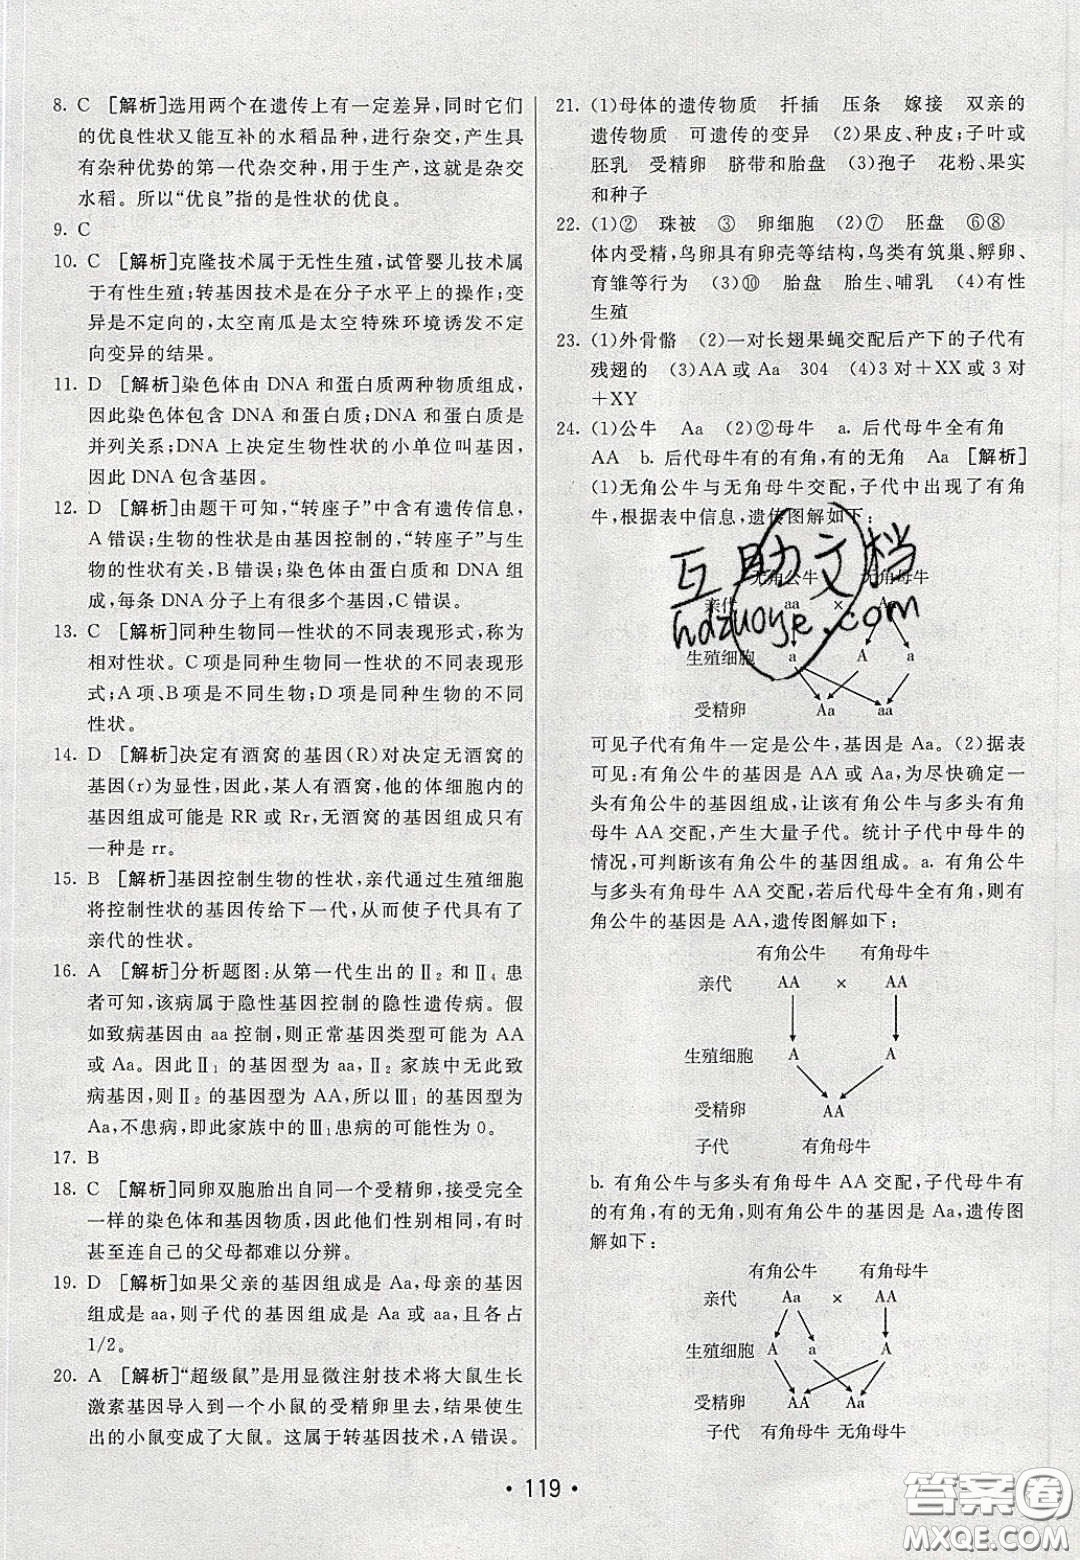 8. C [解析]选用两个在遗传上有一定差异,同时它们
的优良性状又能互补的水稻品种,进行杂交,产生具
有杂种优势的第一代杂交种,用于生产,这就是杂交
水稻。所以“优良”指的是性状的优良。
9. C
10. C [解析]克隆技术属于无性生殖,试管婴儿技术属
于有性生殖;转基因技术是在分子水平上的操作;变
异是不定向的,太空南瓜是太空特殊环境诱发不定
向变异的结果。
11. D [解析]染色体由 DNA 和蛋白质两种物质组成,
因此染色体包含 DNA 和蛋白质;DNA 和蛋白质是
并列关系;DNA 上决定生物性状的小单位叫基因,
因此 DNA 包含基因。
12. D [解析]由题干可知,“转座子”中含有遗传信息,
A 错误;生物的性状是由基因控制的,“转座子”与生
物的性状有关,B 错误;染色体由蛋白质与 DNA 组
成,每条 DNA 分子上有很多个基因,C 错误。
13. C [解析]同种生物同一性状的不同表现形式,称为
相对性状。C 项是同种生物同一性状的不同表现形
式;A 项、B 项是不同生物;D 项是同种生物的不同
性状。
14. D [解析]决定有酒窝的基因(R)对决定无酒窝的
基因(r)为显性,因此,某人有酒窝,他的体细胞内的
基因组成可能是 RR 或 Rr,无酒窝的基因组成只有
一种是 rr。
15. B [解析]基因控制生物的性状,亲代通过生殖细胞
将控制性状的基因传给下一代,从而使子代具有了
亲代的性状。
16. A [解析]分析题图:从第一代生出的Ⅱ₂ 和Ⅱ₄ 患
者可知,该病属于隐性基因控制的隐性遗传病。假
如致病基因由 aa 控制,则正常基因类型可能为 AA
或 Aa。因此Ⅱ₁ 的基因型为 aa,Ⅱ₂ 家族中无此致
病基因,则Ⅱ₂ 的基因型为 AA,所以Ⅲ₁ 的基因型为
Aa,不患病,即此家族中的Ⅲ₁患病的可能性为 0。
17. B
18. C [解析]同卵双胞胎出自同一个受精卵,接受完全
一样的染色体和基因物质,因此他们性别相同,有时
甚至连自己的父母都难以分辨。
19. D [解析]如果父亲的基因组成是 Aa,母亲的基因
组成是 aa,则子代的基因组成是 Aa 或 aa,且各占
1/2。
20. A [解析]“超级鼠”是用显微注射技术将大鼠生长
激素基因导入到一个小鼠的受精卵里去,结果使生
出的小鼠变成了大鼠。这属于转基因技术,A 错误。
21. (1)母体的遗传物质 扦插 压条 嫁接 双亲的
遗传物质 可遗传的变异 (2)果皮、种皮;子叶或
胚乳 受精卵 脐带和胎盘 (3)孢子 花粉、果实
和种子
22. (1)② 珠被 ③ 卵细胞 (2)⑦ 胚盘 ⑥⑧
体内受精,鸟卵具有卵壳等结构,鸟类有筑巢、孵卵、
育雏等行为 (3)⑩ 胎盘 胎生、哺乳 (4)有性
生殖
23. (1)外骨骼 (2)一对长翅果蝇交配后产下的子代有
残翅的 (3)AA 或 Aa 304 (4)3 对+XX 或 3 对
+XY
24. (1)公牛 Aa (2)②母牛 a. 后代母牛全有角
AA b. 后代母牛有的有角,有的无角 Aa [解析]
(1)无角公牛与无角母牛交配,子代中出现了有角
牛,根据表中信息,遗传图解如下:
互助文档
无角公牛 无角母牛
亲代 aa × Aa
hdzuoye.com
生殖细胞 a A a
受精卵 Aa aa
可见子代有角牛一定是公牛,基因是 Aa。(2)据表
可见:有角公牛的基因是 AA 或 Aa,为尽快确定一
头有角公牛的基因组成,让该有角公牛与多头有角
母牛 AA 交配,产生大量子代。统计子代中母牛的
情况,可判断该有角公牛的基因组成。a. 有角公牛
与多头有角母牛 AA 交配,若后代母牛全有角,则有
角公牛的基因是 AA,遗传图解如下:
有角公牛 有角母牛
亲代 AA × AA
生殖细胞 A A
受精卵 AA
子代 有角母牛
b. 有角公牛与多头有角母牛 AA 交配,子代母牛有
的有角,有的无角,则有角公牛的基因是 Aa,遗传图
解如下:
有角公牛 有角母牛
亲代 Aa × AA
生殖细胞 A a A
受精卵 AA Aa
子代 有角母牛 无角母牛
· 119 ·
答案圈
MXQE.COM